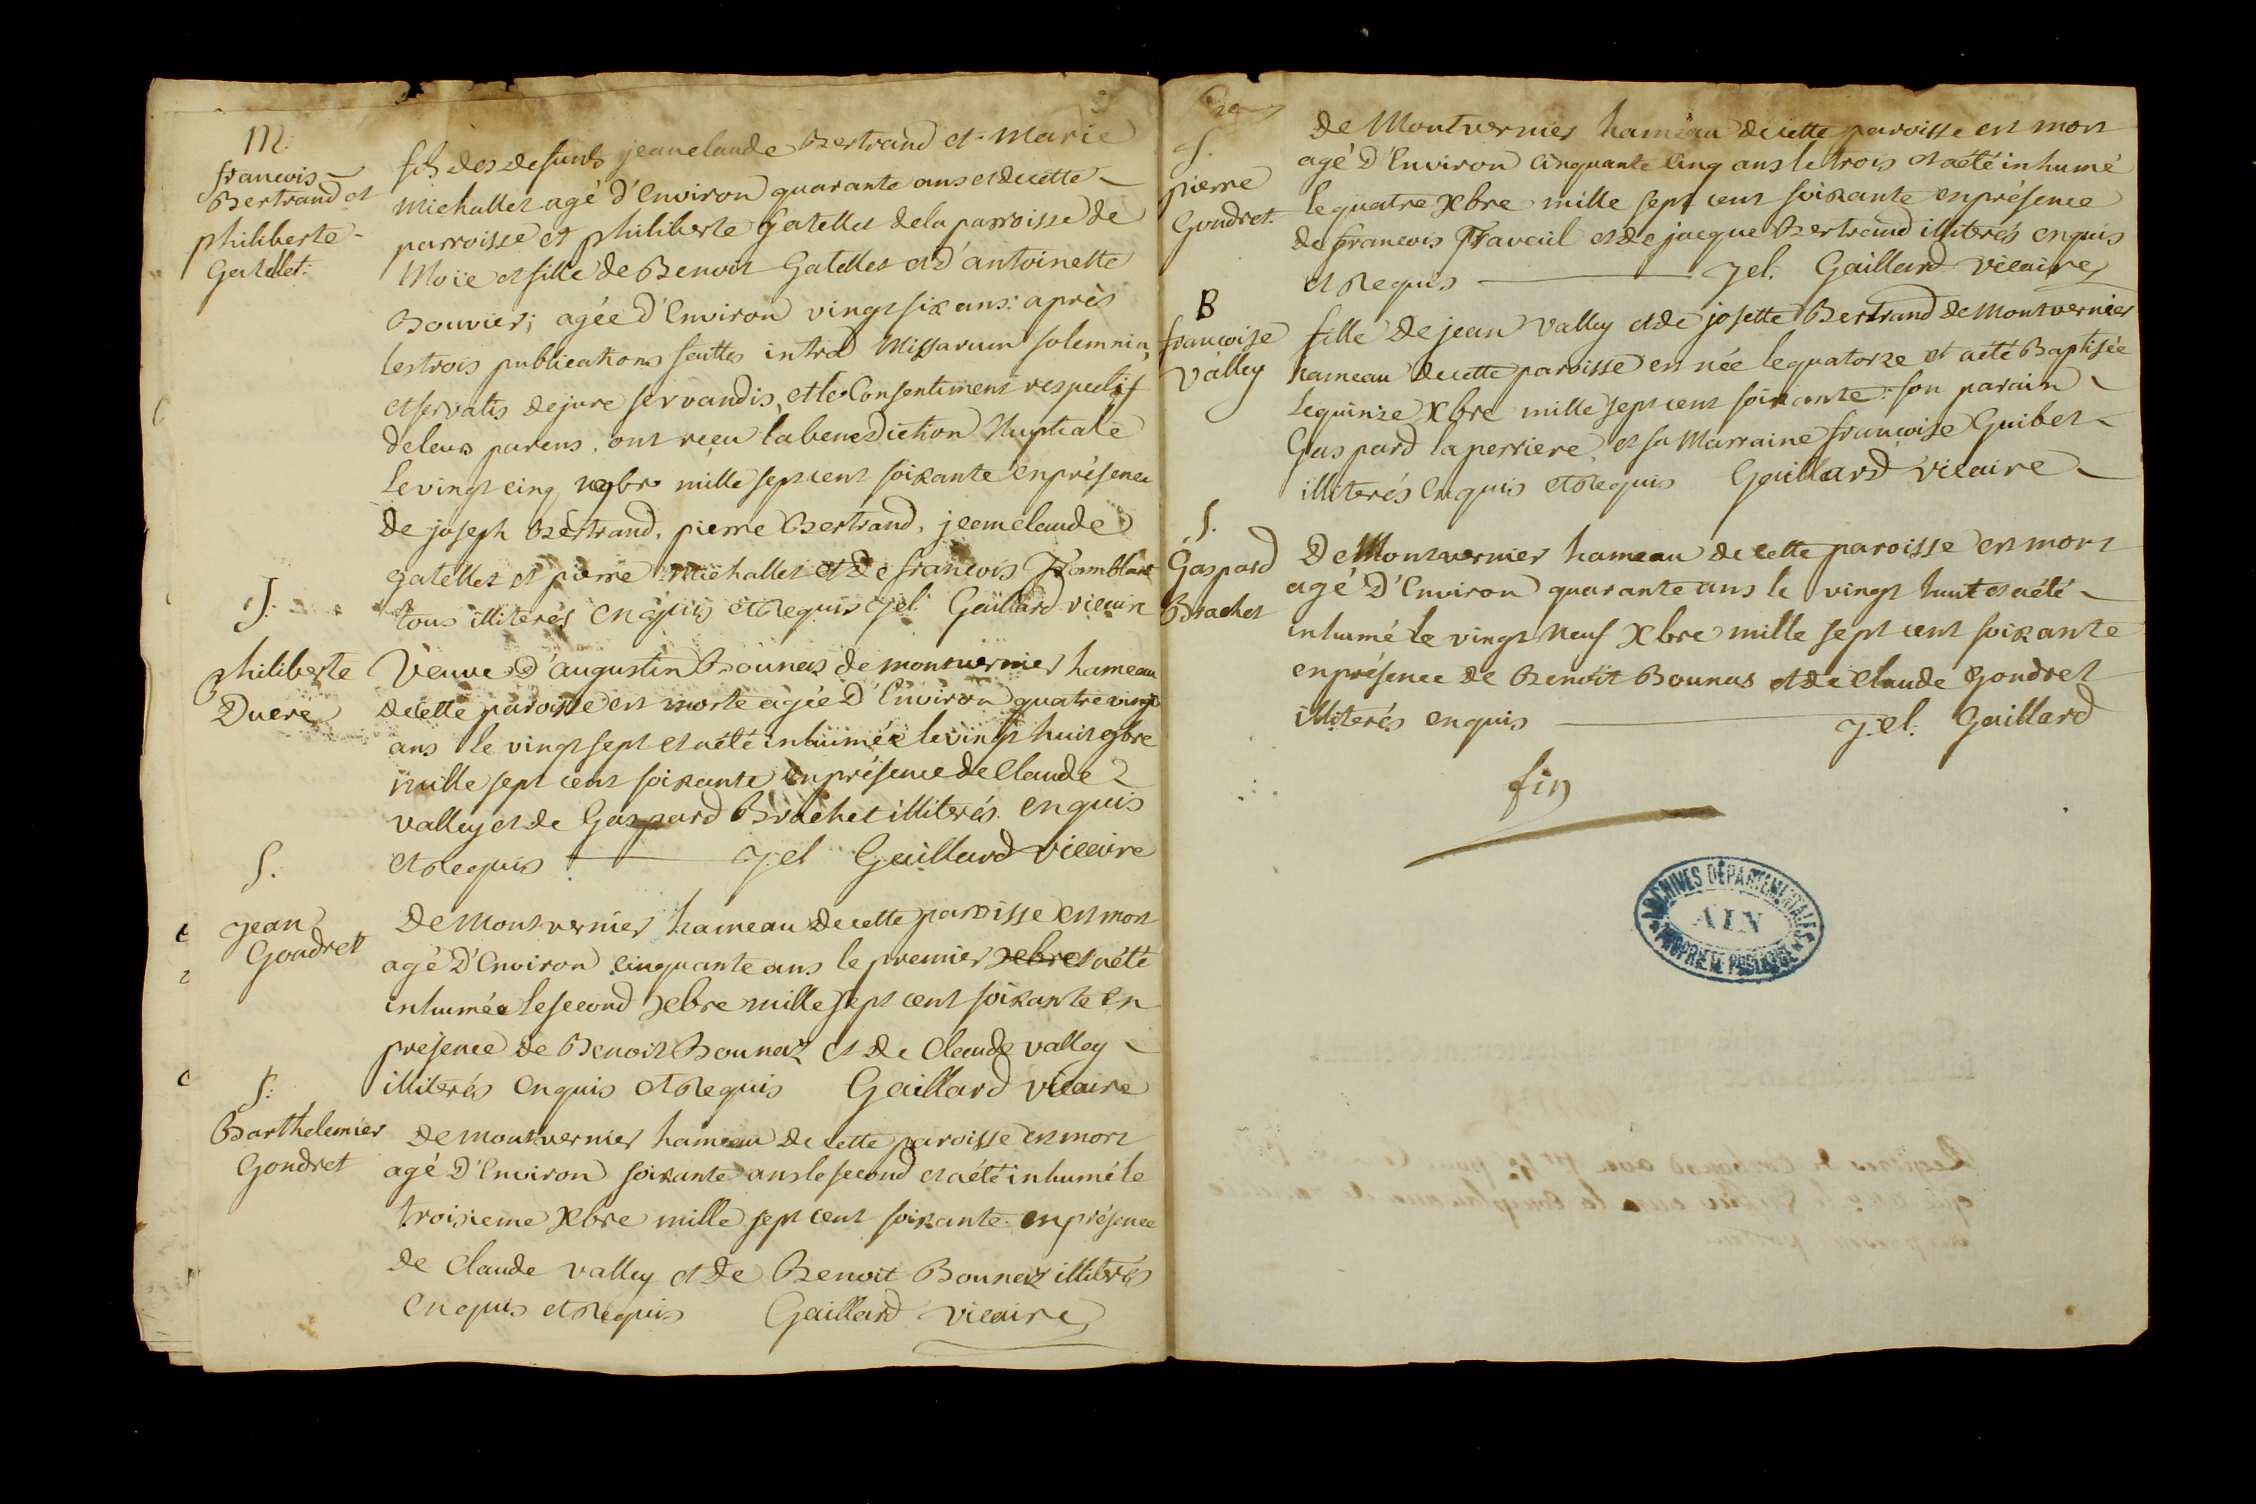 M.
francois
Bertrand et
philiberte
Gatelet.
fils des defunts jeanclaude Bertrand et Marie
Michallet agé d'Environ quarante ans et de cette
parroisse et philiberte Gatellet de la parroisse de
Moïe et fille de Benoit Gatellet et d'antoinette
Bouvier; agée d'Environ vingt six ans: après
les trois publications faittes intra Missarum solemnia,
et servatis de jure servandis, et le Consentiment respectif
de leurs parens, ont reçu la benediction Nuptiale
le vingt cinq 9bre mille sept cent soixante en présence
de joseph Bertrand, pierre Bertrand, jeanclaude
gatellet et pierre Michallet et de francois
tous illiterés Enquis et Requis jcl Gaillard vicaire
S.
philiberte
Ducre
Veuve D'augustin Bounaz de montvernier hameau
de cette paroisse est morte agée D'Environ quatre vingt
ans le vingt sept et a été inhumée le vingt huit 9bre
mille sept cent soixante En présence de Claude
valley et de Gaspard Brachet illiterés enquis
et Requis jcl Gaillard vicaire
S.
jean
Goudret
De Montvernier hameau de cette paroisse est mort
agé D'Environ cinquante ans le premier xbre et a été
inhumée le second Xbre mille sept cent soixante En
présence de Benoit Bounaz et de Claude valley
illiterés Enquis et Requis Gaillard vicaire
S.
Barthelemier
Gondret
De montvernier hameau de cette paroisse est mort
agé D'Environ soixante ans le second et a été inhumé le
troisieme Xbre mille sept cent soixante en présence
de Claude valley et de Benoit Bounaz illiterés
Enquis et Requis Gaillard vicaire
S.
pierre
Gondret.
de Montvernier hameau de cette paroisse est mort
agé D'Environ cinquante cinq ans le trois et a été inhumé
le quatre Xbre mille sept cent soixante en présence
de francois Traveil et de jacque Bertrand illiterés enquis
et Requis jcl. Gaillard vicaire
B
francoise
valley
fille de jean valley et de josette Bertrand de Montvernier
hameau de cette paroisse est née le quatorze et a été Baptisée
le quinze Xbre mille sept cent soixante: son parain
Gaspard laperriere et sa Marraine francoise Guibet
illiterés Enquis et Requis Gaillard vicaire
S.
Gaspard
Brachet
De Montvernier hameau de cette paroisse est mort
agé D'Environ quarante ans le vingt huit et a été
inhumé le vingt Neuf Xbre mille sept cent soixante
en présence de Benoit Bounas et de Claude Gondret
illiterés enquis j.cl. Gaillard
fin
ARCHIVES DÉPARTEMENTALES
AIN
PROPRIÉTÉ PUBLIQUE